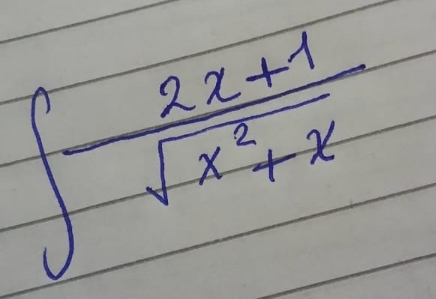 ∫ (2x+1)/√(x²+x)